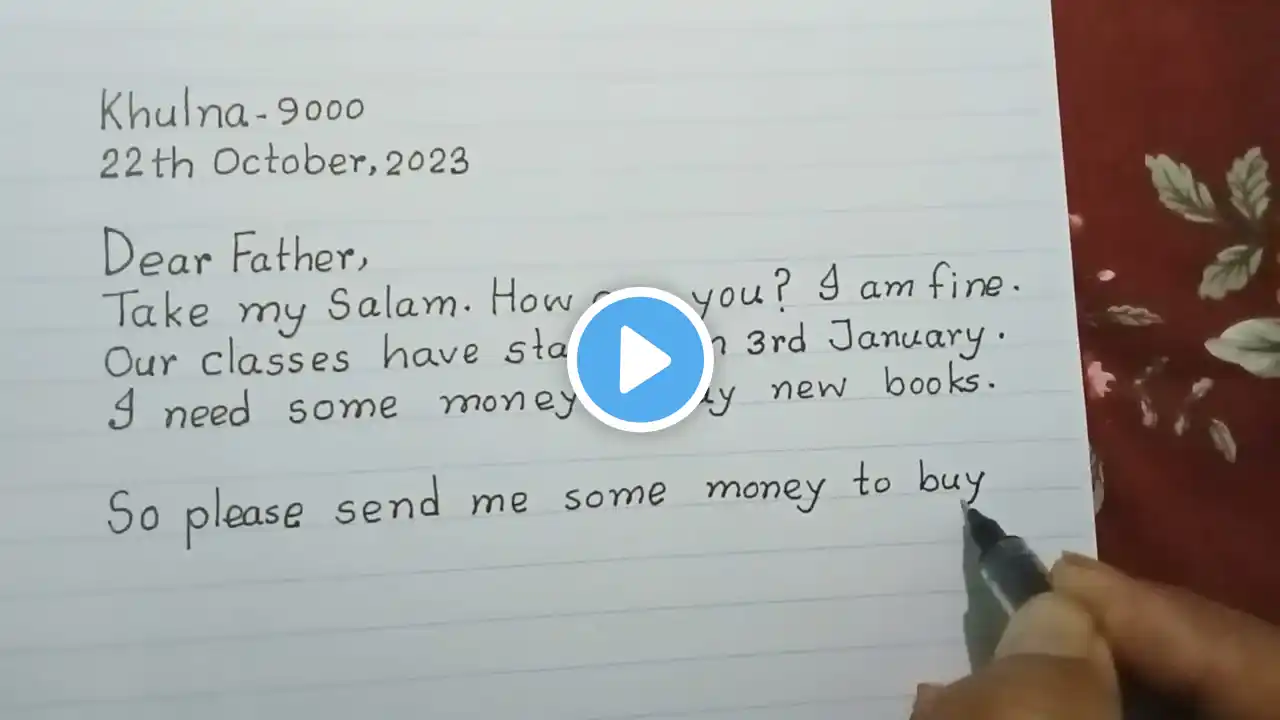 Khulna-9000
22th October, 2023
Dear Father,
Take my Salam. How you? I am fine.
Our classes have 3rd January.
I need some money new books.
So please send me some money to buy